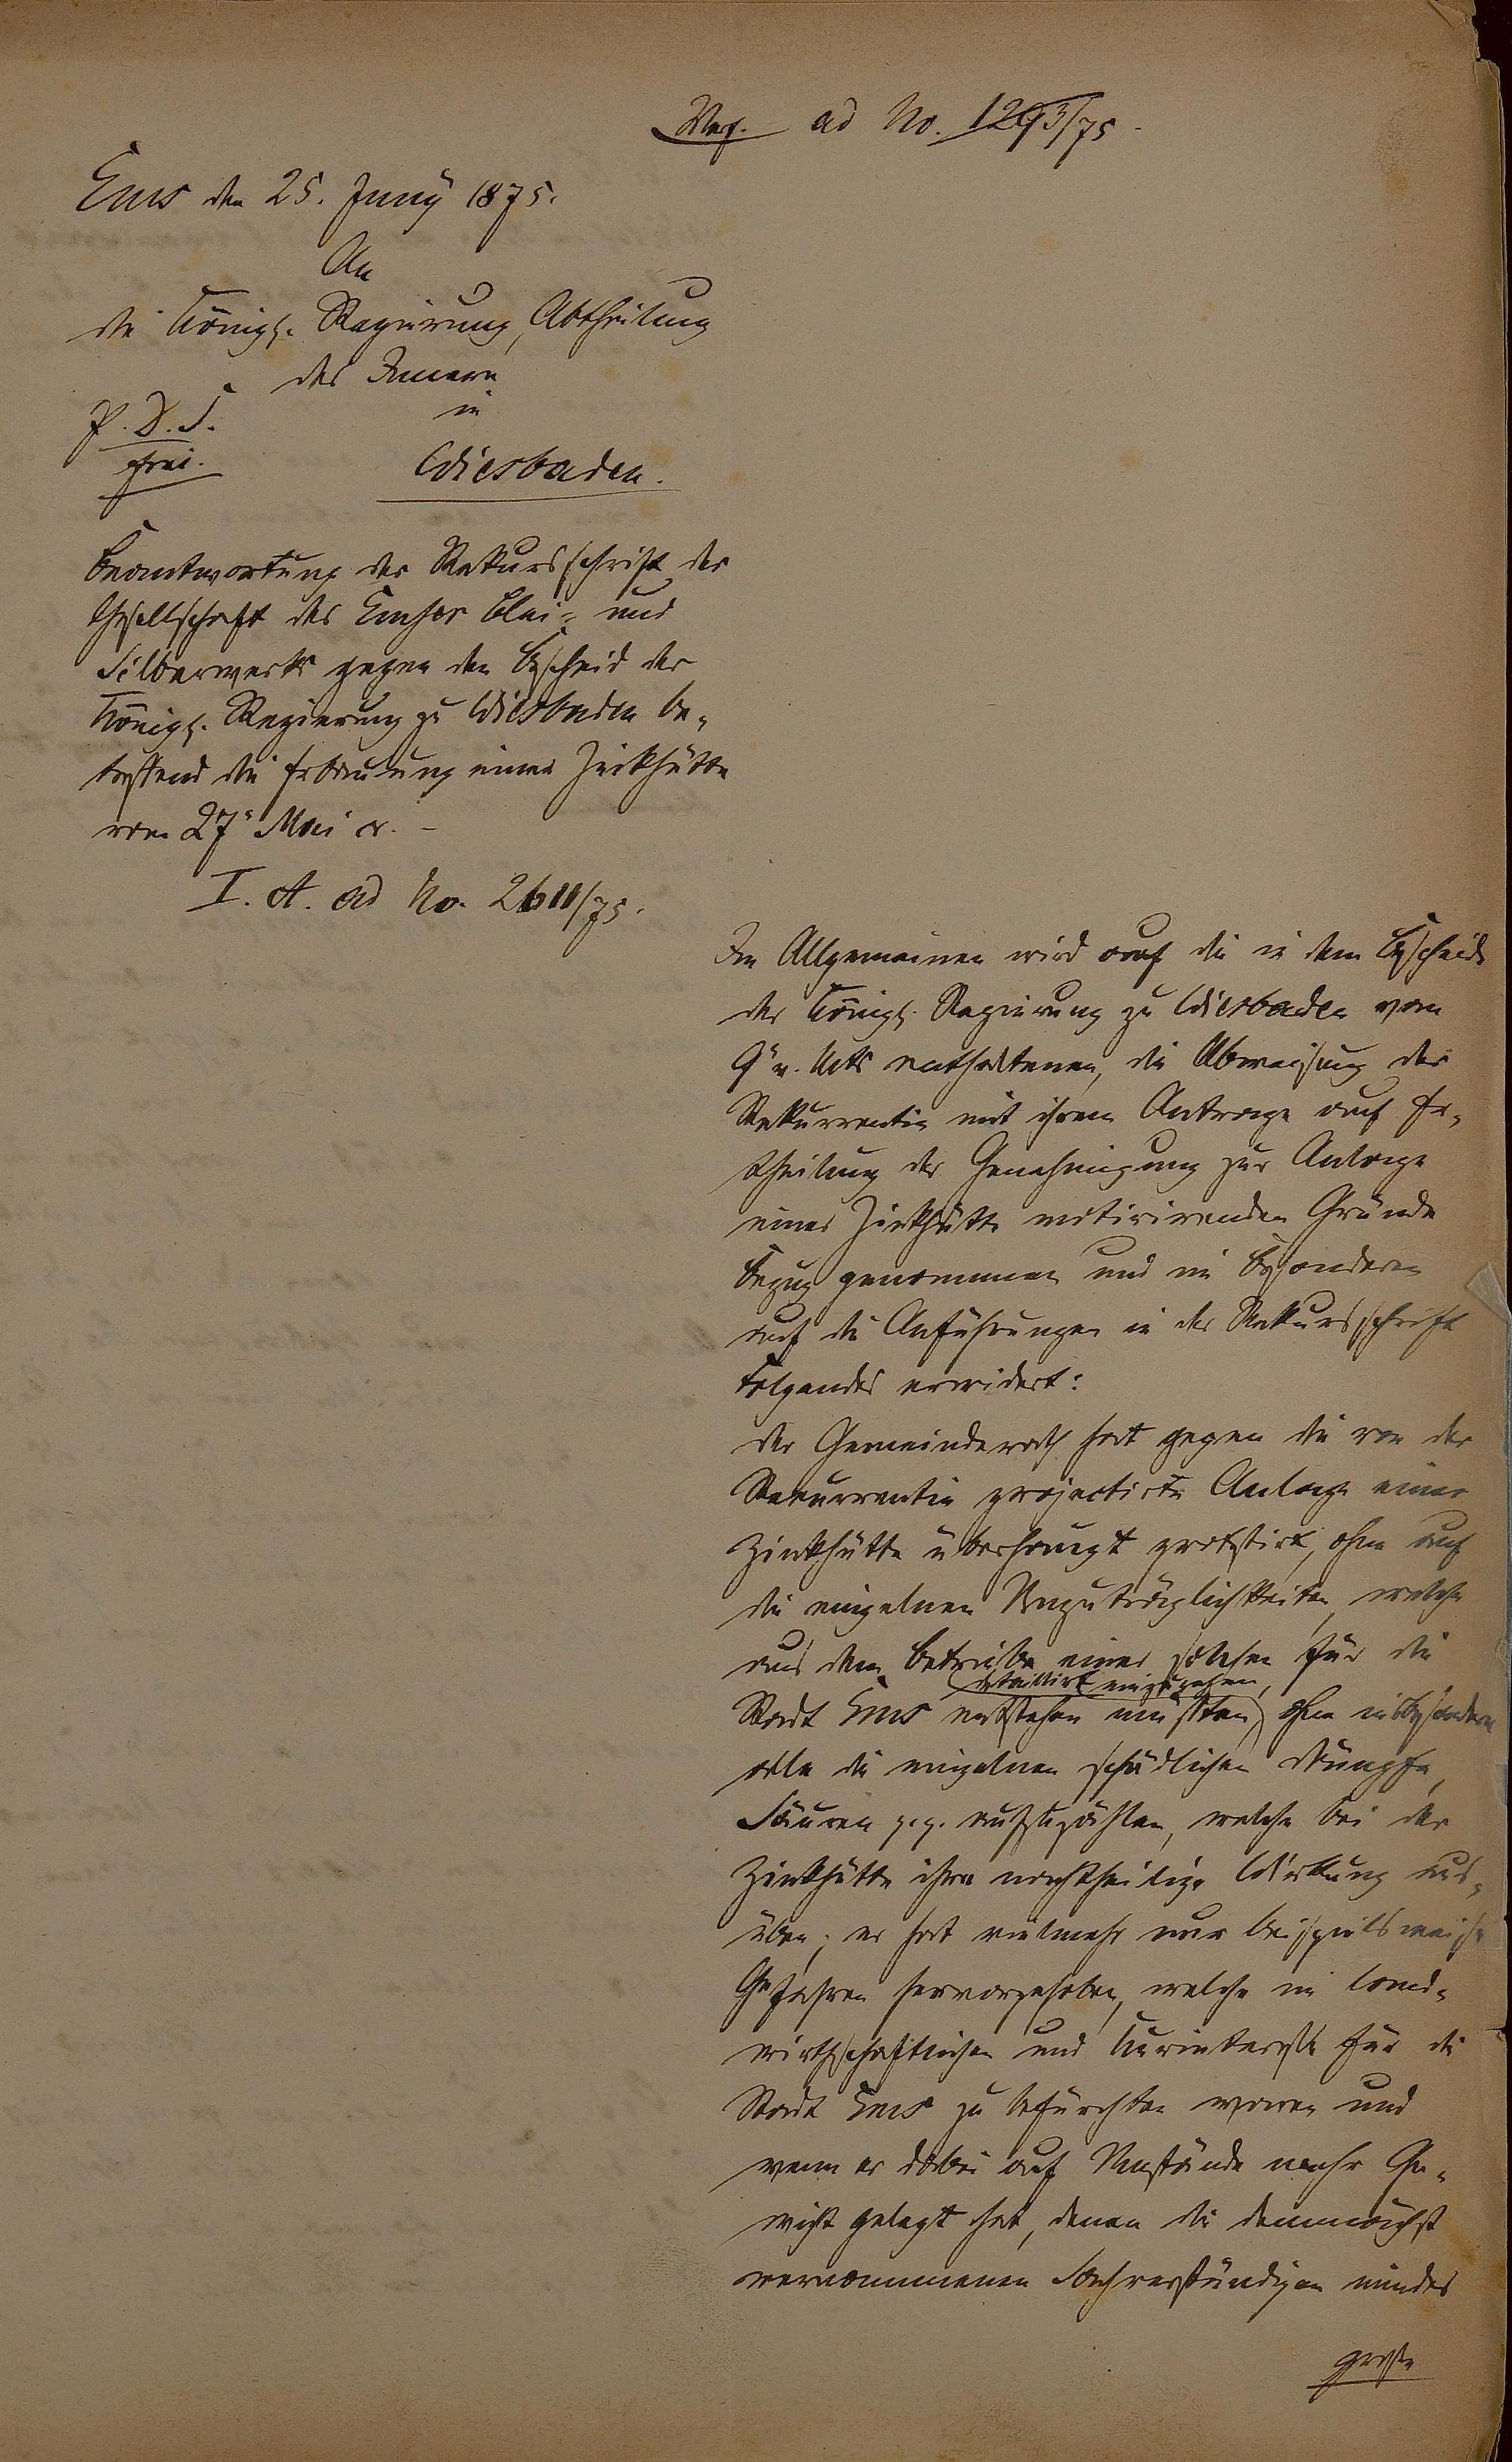 Verf. ad No. 1293/75.
Ems den 25. Juny 1875.
An
die Königl. Regierung, Abtheilung
des Innern
in
P. D. S.
frei.
Wiesbaden.
Beantwortung der Rekursschrift der
Gesellschaft des Emser Blei- und
Silberwerks gegen den Bescheid der
Königl. Regierung zu Wiesbaden be-
treffend die Erbauung einer Zinkhütte
vom 27" Mai cr. –
I. A. ad No. 2611/75.
Im Allgemeinen wird auf die in dem Bescheide
der Königl. Regierung zu Wiesbaden vom
9" v. Mts enthaltenen, die Abweisung der
Rekurrentin mit ihrem Antrage auf Er-
theilung der Genehmigung zur Anlage
einer Zinkhütte motivirenden Gründe
Bezug genommen und im Besonderen
auf die Anführungen in der Rekursschrift
Folgendes erwidert:
Der Gemeinderath hat gegen die von der
Rekurrentin projectirte Anlage einer
Zinkhütte überhaupt protestirt, ohne auf
die einzelnen Unzuträglichkeiten, welche
aus dem Betriebe einer solchen für die
detaillirt einzugehen,
Stadt Ems entstehen müßten, ohne insbesondere
alle die einzelnen schädlichen Dämpfe,
Säuren p. p. aufzuzählen, welche bei der
Zinkhütte ihre nachtheilige Wirkung aus-
üben; er hat vielmehr nur beispielsweise
Gefahren hervorgehoben, welche im land-
wirthschaftlichen und Kurinteresse für die
Stadt Ems zu befürchten waren und
wenn er dabei auf Umstände mehr Ge-
wicht gelegt hat, denen die demnächst
vernommenen Sachverständigen minder
große